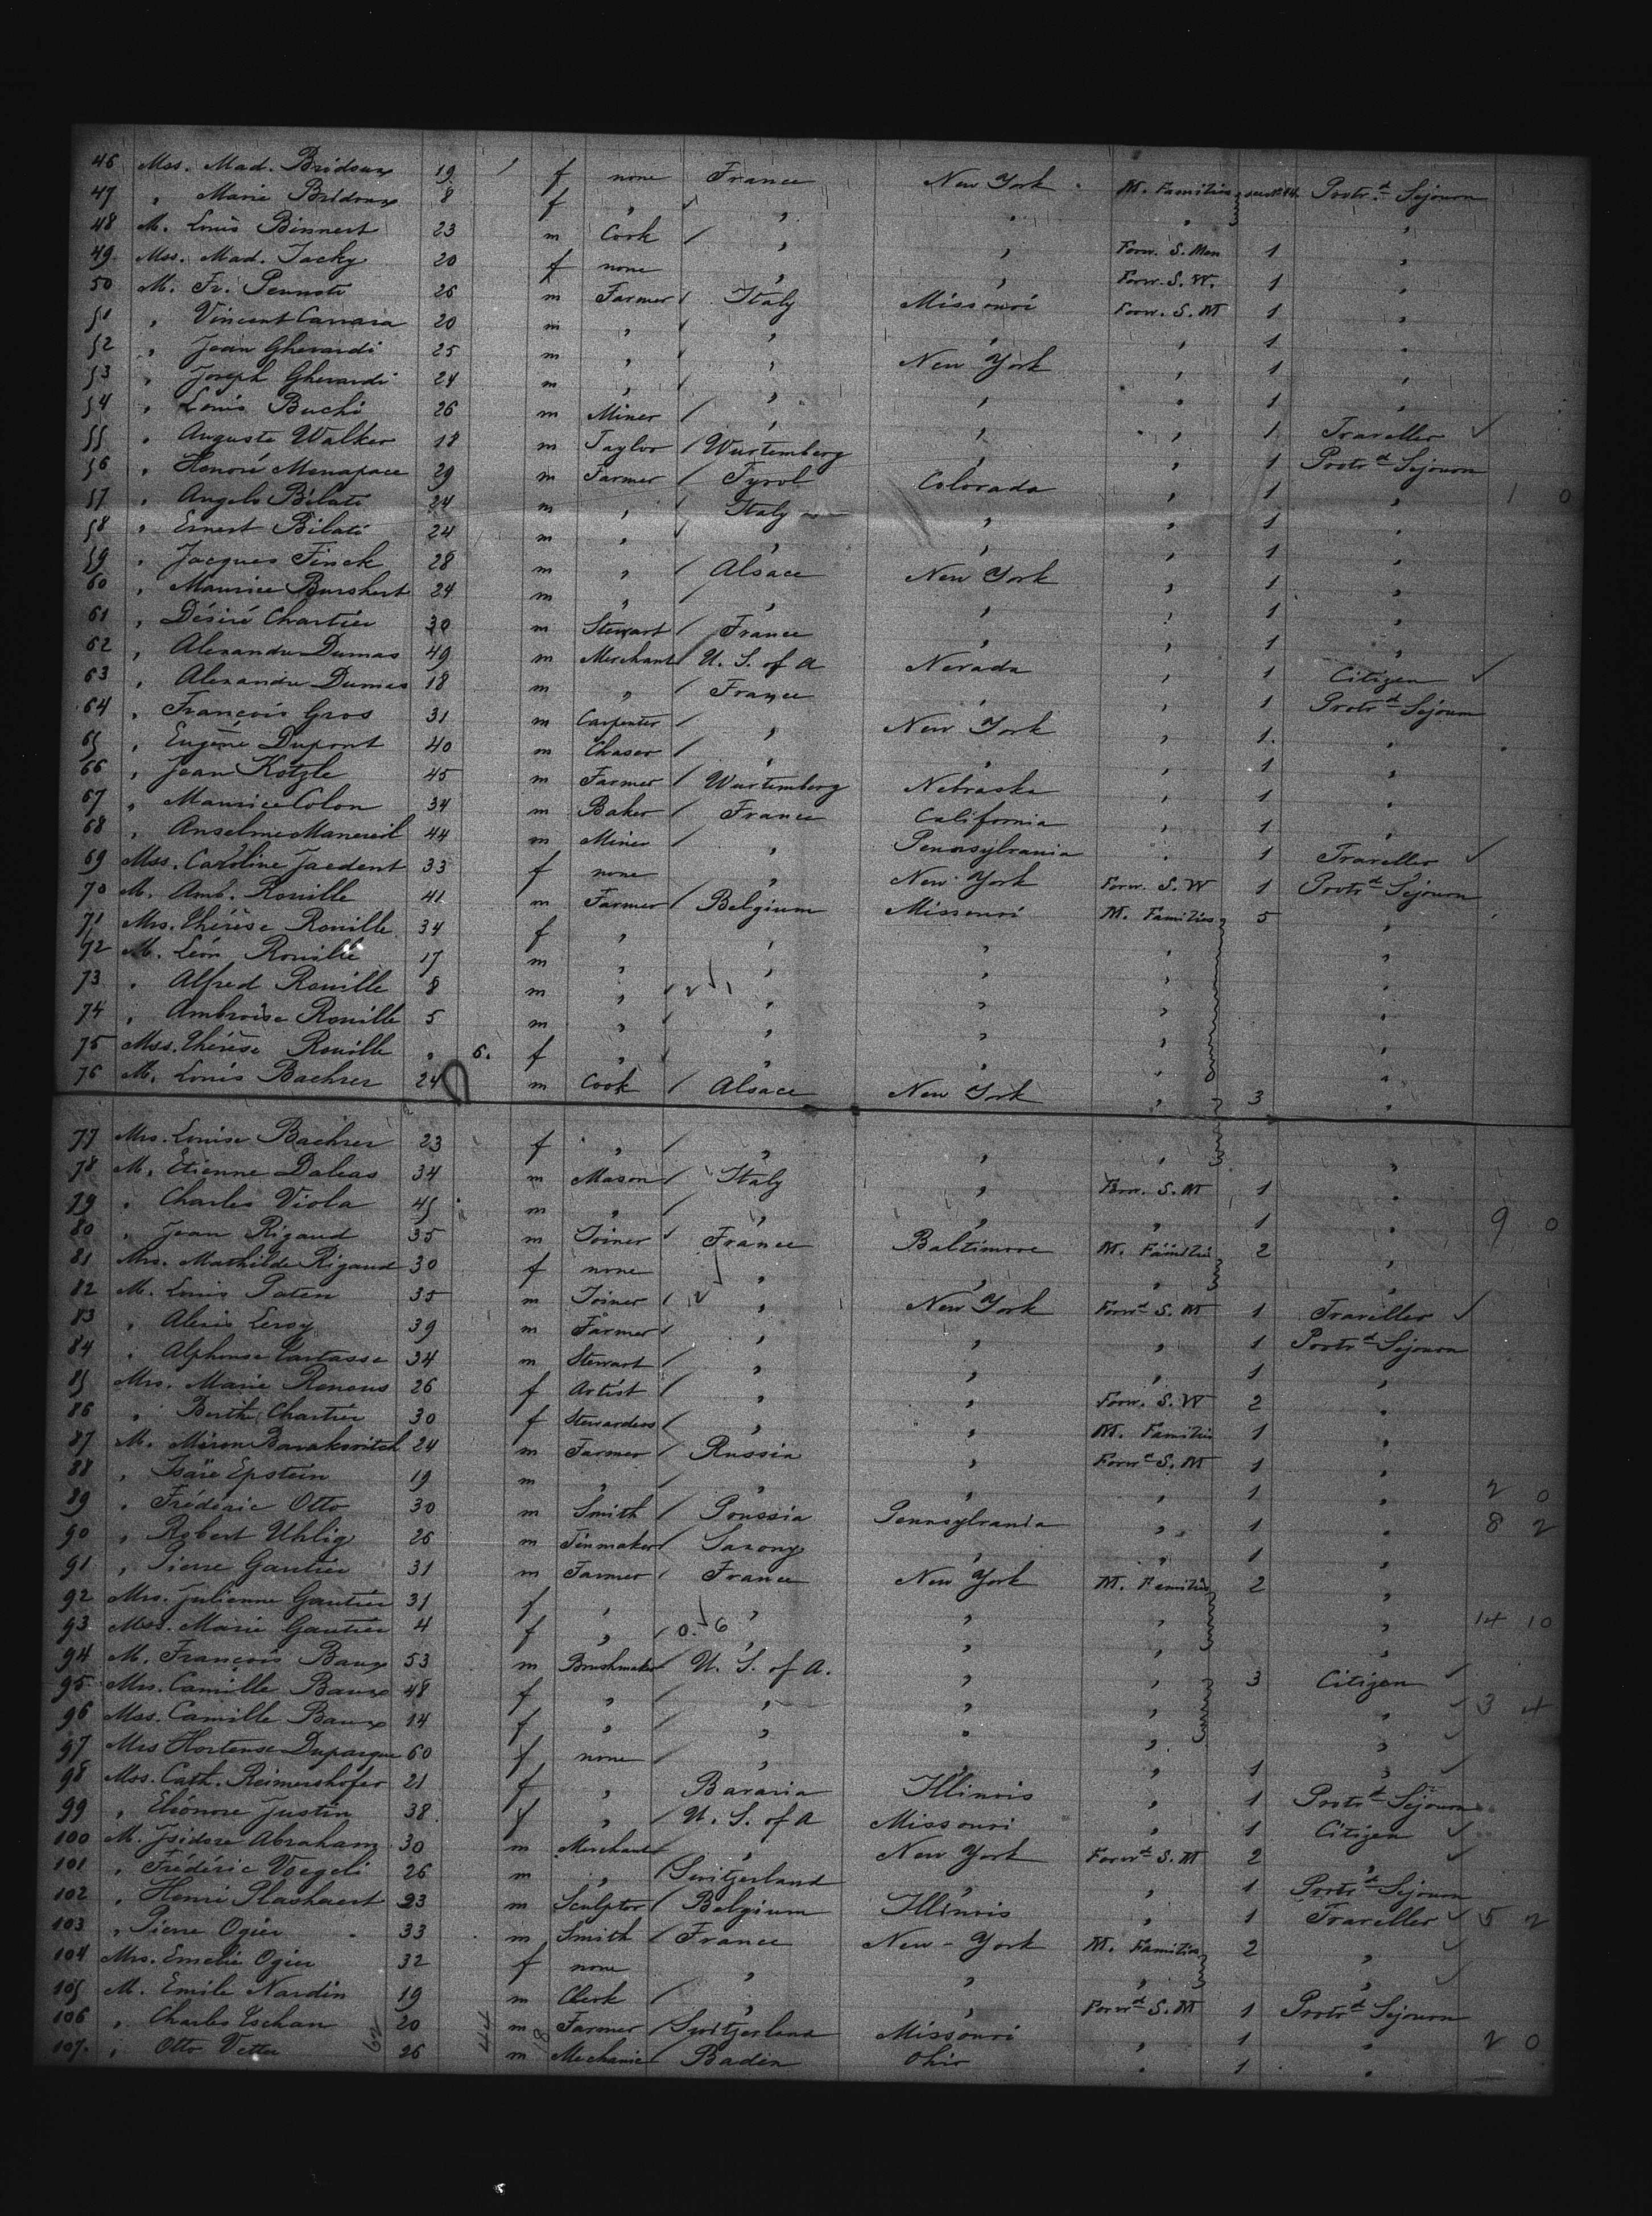 46 Mss. Mad. Bridoux 19 f none France New York M. Families Protr.d Sejourn
47 " Marie Bridoux 8 f " " " " "
48 M. Louis Binnert 23 m Cook " " Forw. S. Men 1 "
49 Mss. Mad. Jacky 20 f none " " Forw. S. W. 1 "
50 M. Fr. 26 m Farmer Italy Missouri Forw. S. M 1 "
51 " Vincent Carrara 20 m " " " " 1 "
52 " Jean Gherardi 25 m " " New York " 1 "
53 " Joseph Gherardi 24 m " " " " 1 "
54 " Louis Buchi 26 m Miner " " " 1 Traveller
55 " Auguste Walker 18 m Taylor Wurtemberg " " 1 Protr.d Sejourn
56 " Honoré Menapace 29 m Farmer Tyrol Colorado " 1 " 1 0
57 " Angelo Bilati 24 m " Italy " " 1 "
58 " Ernest Bilati 24 m " " " " 1 "
59 " Jacques Finck 28 m " Alsace New York " 1 "
60 " Maurice Burshert 24 m " " " " 1 "
61 " Désiré Chartier 30 m Stewart France " " 1 "
62 " Alexandre Dumas 49 m Merchant U. S. of A Nevada " 1 Citizen
63 " Alexandre Dumas 18 m " France " " 1 Protr.d Sejourn
64 " François Gros 31 m Carpenter " New York " 1 "
65 " Eugène Dupont 40 m Chaser " " " 1 "
66 " Jean Kotzle 45 m Farmer Wurtemberg Nebraska " 1 "
67 " Maurice Colon 34 m Baker France California " 1 "
68 " Anselme 44 m Miner " Pennsylvania " 1 Traveller
69 Mss. Caroline Jaedent 33 f none " New York Forw. S. W 1 Protr.d Sejourn
70 M. Amb. Rouille 41 m Farmer Belgium Missouri M. Families 5 "
71 Mrs. Thérèse Rouille 34 f " " " " "
72 M. Léon Rouille 17 m " " " " "
73 " Alfred Rouille 8 m " " " " "
74 " Ambroise Rouille 5 m " " " " "
75 Mss. Thérèse Rouille " 6. f " " " " "
76 M. Louis Baehrer 24 m Cook Alsace New York " 3 "
77 Mrs. Louise Baehrer 23 f " " " " "
78 M. Etienne Daleas 34 m Mason Italy " Forw. S. M 1 "
79 " Charles Viola 45 m " " " " 1 " 9 0
80 " Jean Rigaud 35 m Joiner France Baltimore M. Families 2 "
81 Mrs. Mathilde Rigaud 30 f none " " " "
82 M. Louis Paten 35 m Joiner " New York Forw.d S. M 1 Traveller
83 " Alexis Leroy 39 m Farmer " " " 1 Protr.d Sejourn
84 " Alphonse Tartasse 34 m Stewart " " " 1 "
85 Mrs. Marie Renous 26 f Artist " " Forw. S. W 2 "
86 " Berthe Chartier 30 f Stewardess " " M. Families 1 "
87 M. Miron Barakovitch 24 m Farmer Russia " Forw.d S. M 1 "
88 " Isaïe Epstein 19 m " " " " 1 " 2 0
89 " Fréderic Otto 30 m Smith Prussia Pennsylvania " 1 " 8 2
90 " Robert Uhlig 26 m Tinmaker Saxony " " 1 "
91 " Pierre Gautier 31 m Farmer France New York M. Families 2 "
92 Mrs. Julienne Gautier 31 f " " " " " 14 10
93 Mss. Marie Gautier 4 f " 0. 6 " " " "
94 M. François Baux 53 m Brushmaker U. S. of A. " " 3 Citizen
95 Mrs. Camille Baux 48 f " " " " " 3 4
96 Mss. Camille Baux 14 f " " " " "
97 Mrs Hortense Duparque 60 f none " " " 1 "
98 Mss. Cath. Reimershofer 21 f " Bavaria Illinois " 1 Protr.d Sejourn
99 " Eléonore Justin 38 f " U. S. of A Missouri " 1 Citizen
100 M. Isidore Abraham 30 m Merchant " New York Forw.d S. M 2 "
101 " Frédéric Voegeli 26 m " Switzerland " " 1 Protr.d Sejourn
102 " Henri Plashaert 23 m Sculptor Belgium Illinois " 1 Traveller 5 2
103 " Pierre Ogier 33 m Smith France New-York M. Families 2 "
104 Mrs. Emelie Ogier 32 f none " " " "
105 M. Emile Nardin 19 m Clerk " " Forw.d S. M 1 Protr.d Sejourn
106 " Charles Eschan 20 m Farmer Switzerland Missouri " 1 " 2 0
107. " Otto Vetter 26 m Mechanic Baden Ohio " 1 "
62 44 18